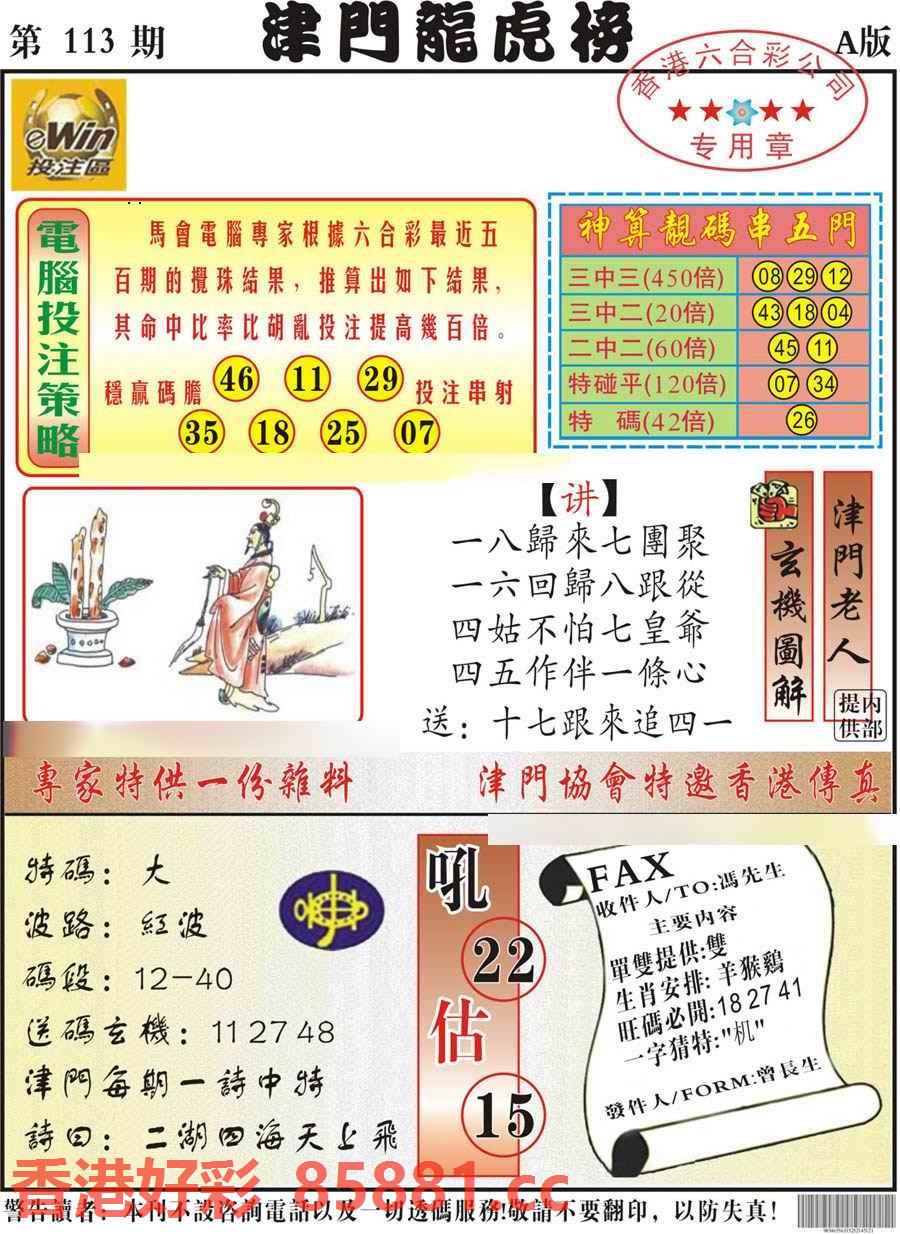 第 113 期
津門龍虎榜
A版
香港六合彩公司
专用章
eWin
投注區
電腦投注策略
馬會電腦專家根據六合彩最近五
百期的攪珠結果，推算出如下結果，
其命中比率比胡亂投注提高幾百倍。
穩贏碼膽 46 11 29 投注串射
35 18 25 07
神算靚碼串五門
三中三(450倍) 08 29 12
三中二(20倍) 43 18 04
二中二(60倍) 45 11
特碰平(120倍) 07 34
特 碼(42倍) 26
【讲】
一八歸來七團聚
一六回歸八跟從
四姑不怕七皇爺
四五作伴一條心
送：十七跟來追四一
玄機圖解
津門老人
内部提供
專家特供一份雜料
津門協會特邀香港傳真
特碼：大
波路：紅波
碼段：12－40
送碼玄機：11 27 48
津門每期一詩中特
詩曰：二湖四海天上飛
吼
22
估
15
FAX
收件人/TO:馮先生
主要内容
單雙提供:雙
生肖安排:羊猴鷄
旺碼必開:18 27 41
一字猜特:"机"
發件人/FORM:曾長生
香港好彩 85881.cc
警告讀者：本刊不設咨詢電話以及一切透碼服務!敬請不要翻印，以防失真!